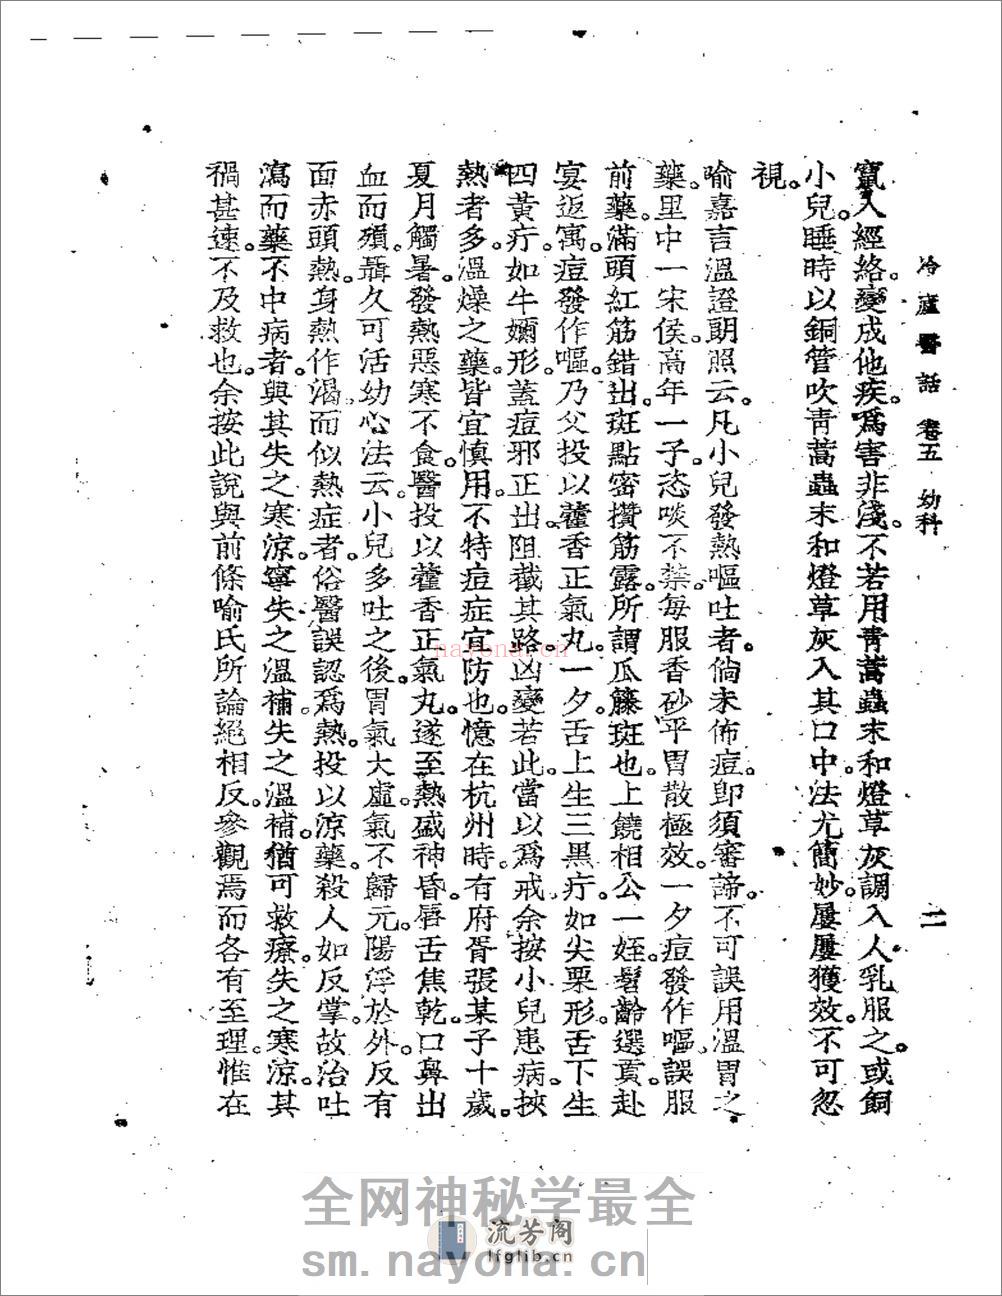 冷廬醫話 卷五 幼科 二
竄入經絡。變成他疾。爲害非淺。不若用靑蒿蟲末和燈草灰調入人乳服之。或飼
小兒。睡時以銅管吹靑蒿蟲末和燈草灰入其口中。法尤簡妙。屢屢獲效。不可忽
視。
喻嘉言溫證朗照云。凡小兒發熱嘔吐者。倘未佈痘。卽須審諦。不可誤用溫胃之
藥。里中一宋侯。高年一子。恣啖不禁。每服香砂平胃散極效。一夕痘發作嘔。誤服
前藥。滿頭紅筋錯出。斑點密攢筋露。所謂瓜籐斑也。上饒相公一姪。髫齡選貢。赴
宴返寓。痘發作嘔。乃父投以藿香正氣丸。一夕舌上生三黑疔。如尖栗形。舌下生
四黃疔。如牛嬭形。蓋痘邪正出。阻截其路。凶變若此。當以爲戒。余按小兒患病。挾
熱者多。溫燥之藥。皆宜慎用。不特痘症宜防也。憶在杭州時。有府胥張某子十歲。
夏月觸暑。發熱惡寒不食。醫投以藿香正氣丸。遂至熱盛神昏。唇舌焦乾。口鼻出
血而殞。聶久可活幼心法云。小兒多吐之後。胃氣大虛。氣不歸元。陽浮於外。反有
面赤頭熱。身熱作渴。而似熱症者。俗醫誤認爲熱。投以凉藥。殺人如反掌。故治吐
瀉而藥不中病者。與其失之寒凉。寧失之溫補。失之溫補。猶可救療。失之寒凉。其
禍甚速。不及救也。余按此說與前條喻氏所論絕相反。參觀焉而各有至理。惟在
nayona.cn
全网神秘学最全
流芳阁
lfglib.cn
sm.nayona.cn